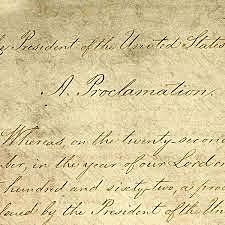 President of the United States
A Proclamation.
Whereas, on the twenty-second
ber, in the year of our Lord one
hundred and sixty-two, a proc
sued by the President of the Uni